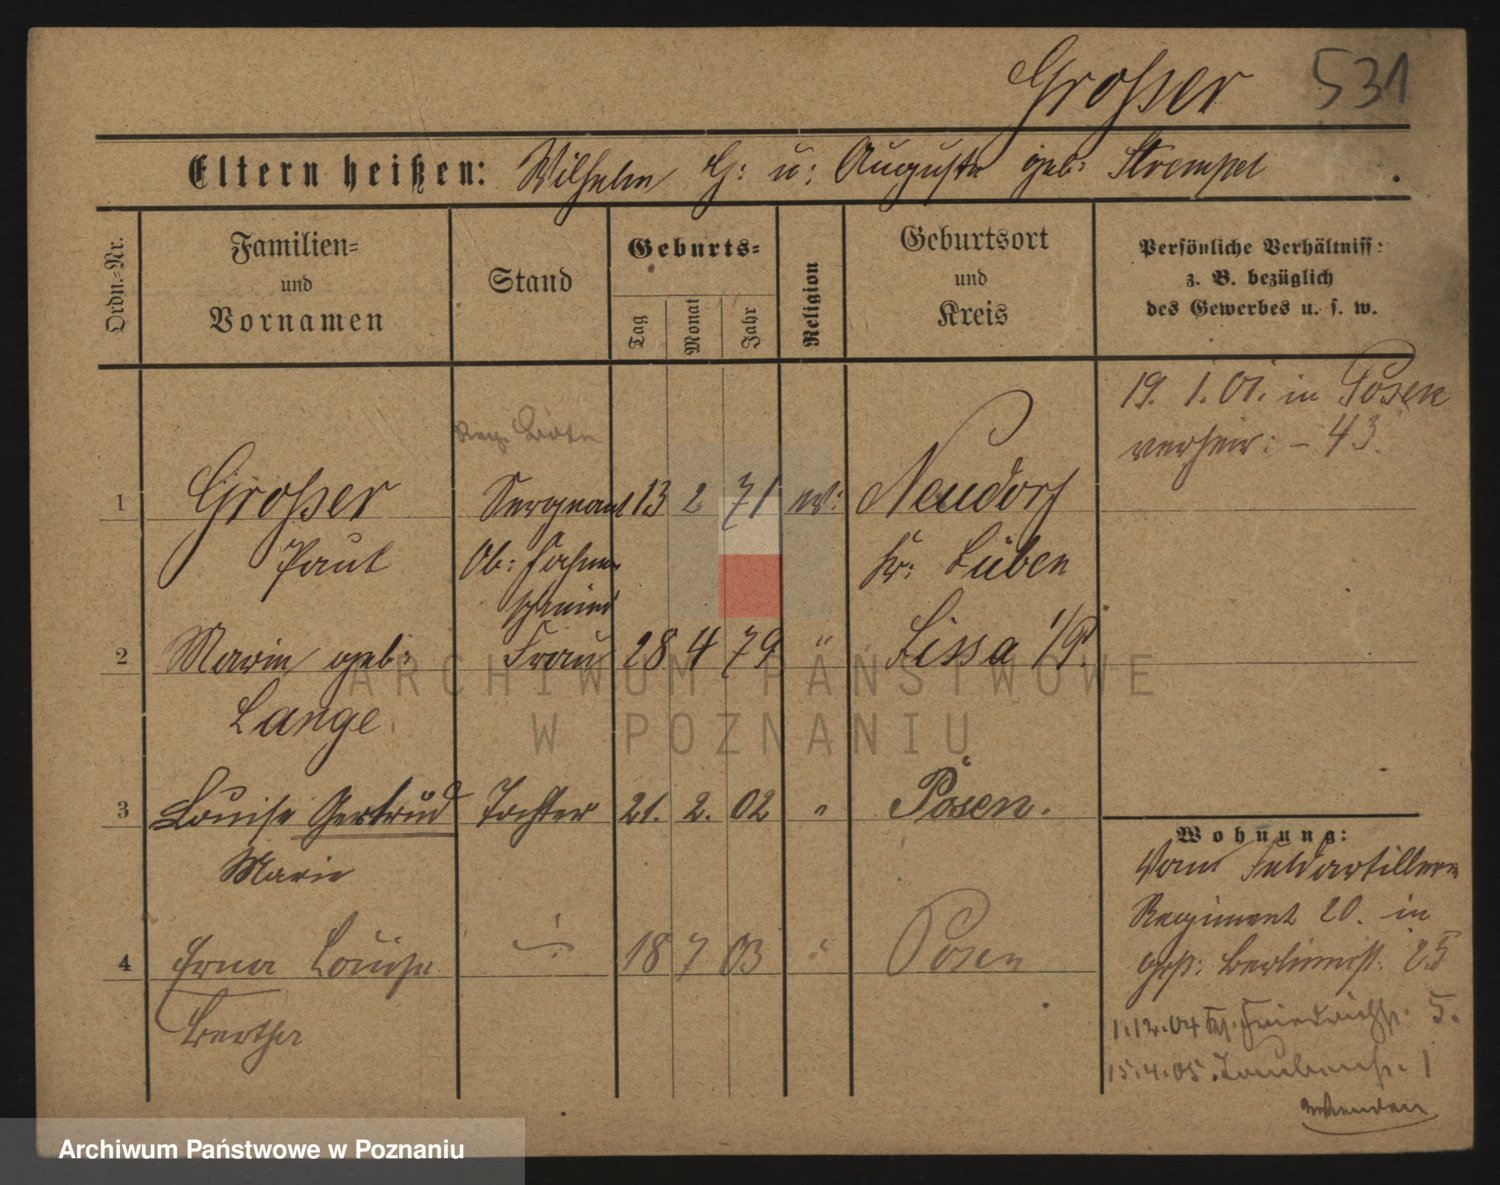 Großer 531
Eltern heißen: Wilhelm G: u: Auguste geb: Strempel
Ordn.-Nr.
Familien-
und
Vornamen
Stand
Geburts-
Tag
Monat
Jahr
Religion
Geburtsort
und
Kreis
Persönliche Verhältniss:
z. B. bezüglich
des Gewerbes u. s. w.
19. 1. 01. in Posen
verheir: - 43.
1 Großer Sergeant 13 2 71 ev: Neudorf
Paul Ob: Fahnen Kr: Lüben
schmied
2 Marie geb: Frau 28 4 79 " Lissa i/P.
Lange
3 Louise Gertrud Tochter 21. 2. 02 " Posen.
Marie
4 Erna Louise 18 7 03 " Posen
Bertha
Wohnung:
Vom Feldartillerie
Regiment 20. in
Berlinerst. 25
1.12.04 Friedrichstr. 5.
15.4.05. 1
wenden
ARCHIWUM PAŃSTWOWE
W POZNANIU
Archiwum Państwowe w Poznaniu